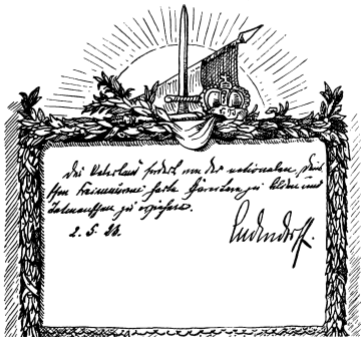 Das Vaterland fordert von der nationalen, deut
schen Freimaurerei feste Charaktere zu bilden und
Tatmenschen zu erziehen.
2. 5. 23.
Ludendorff.